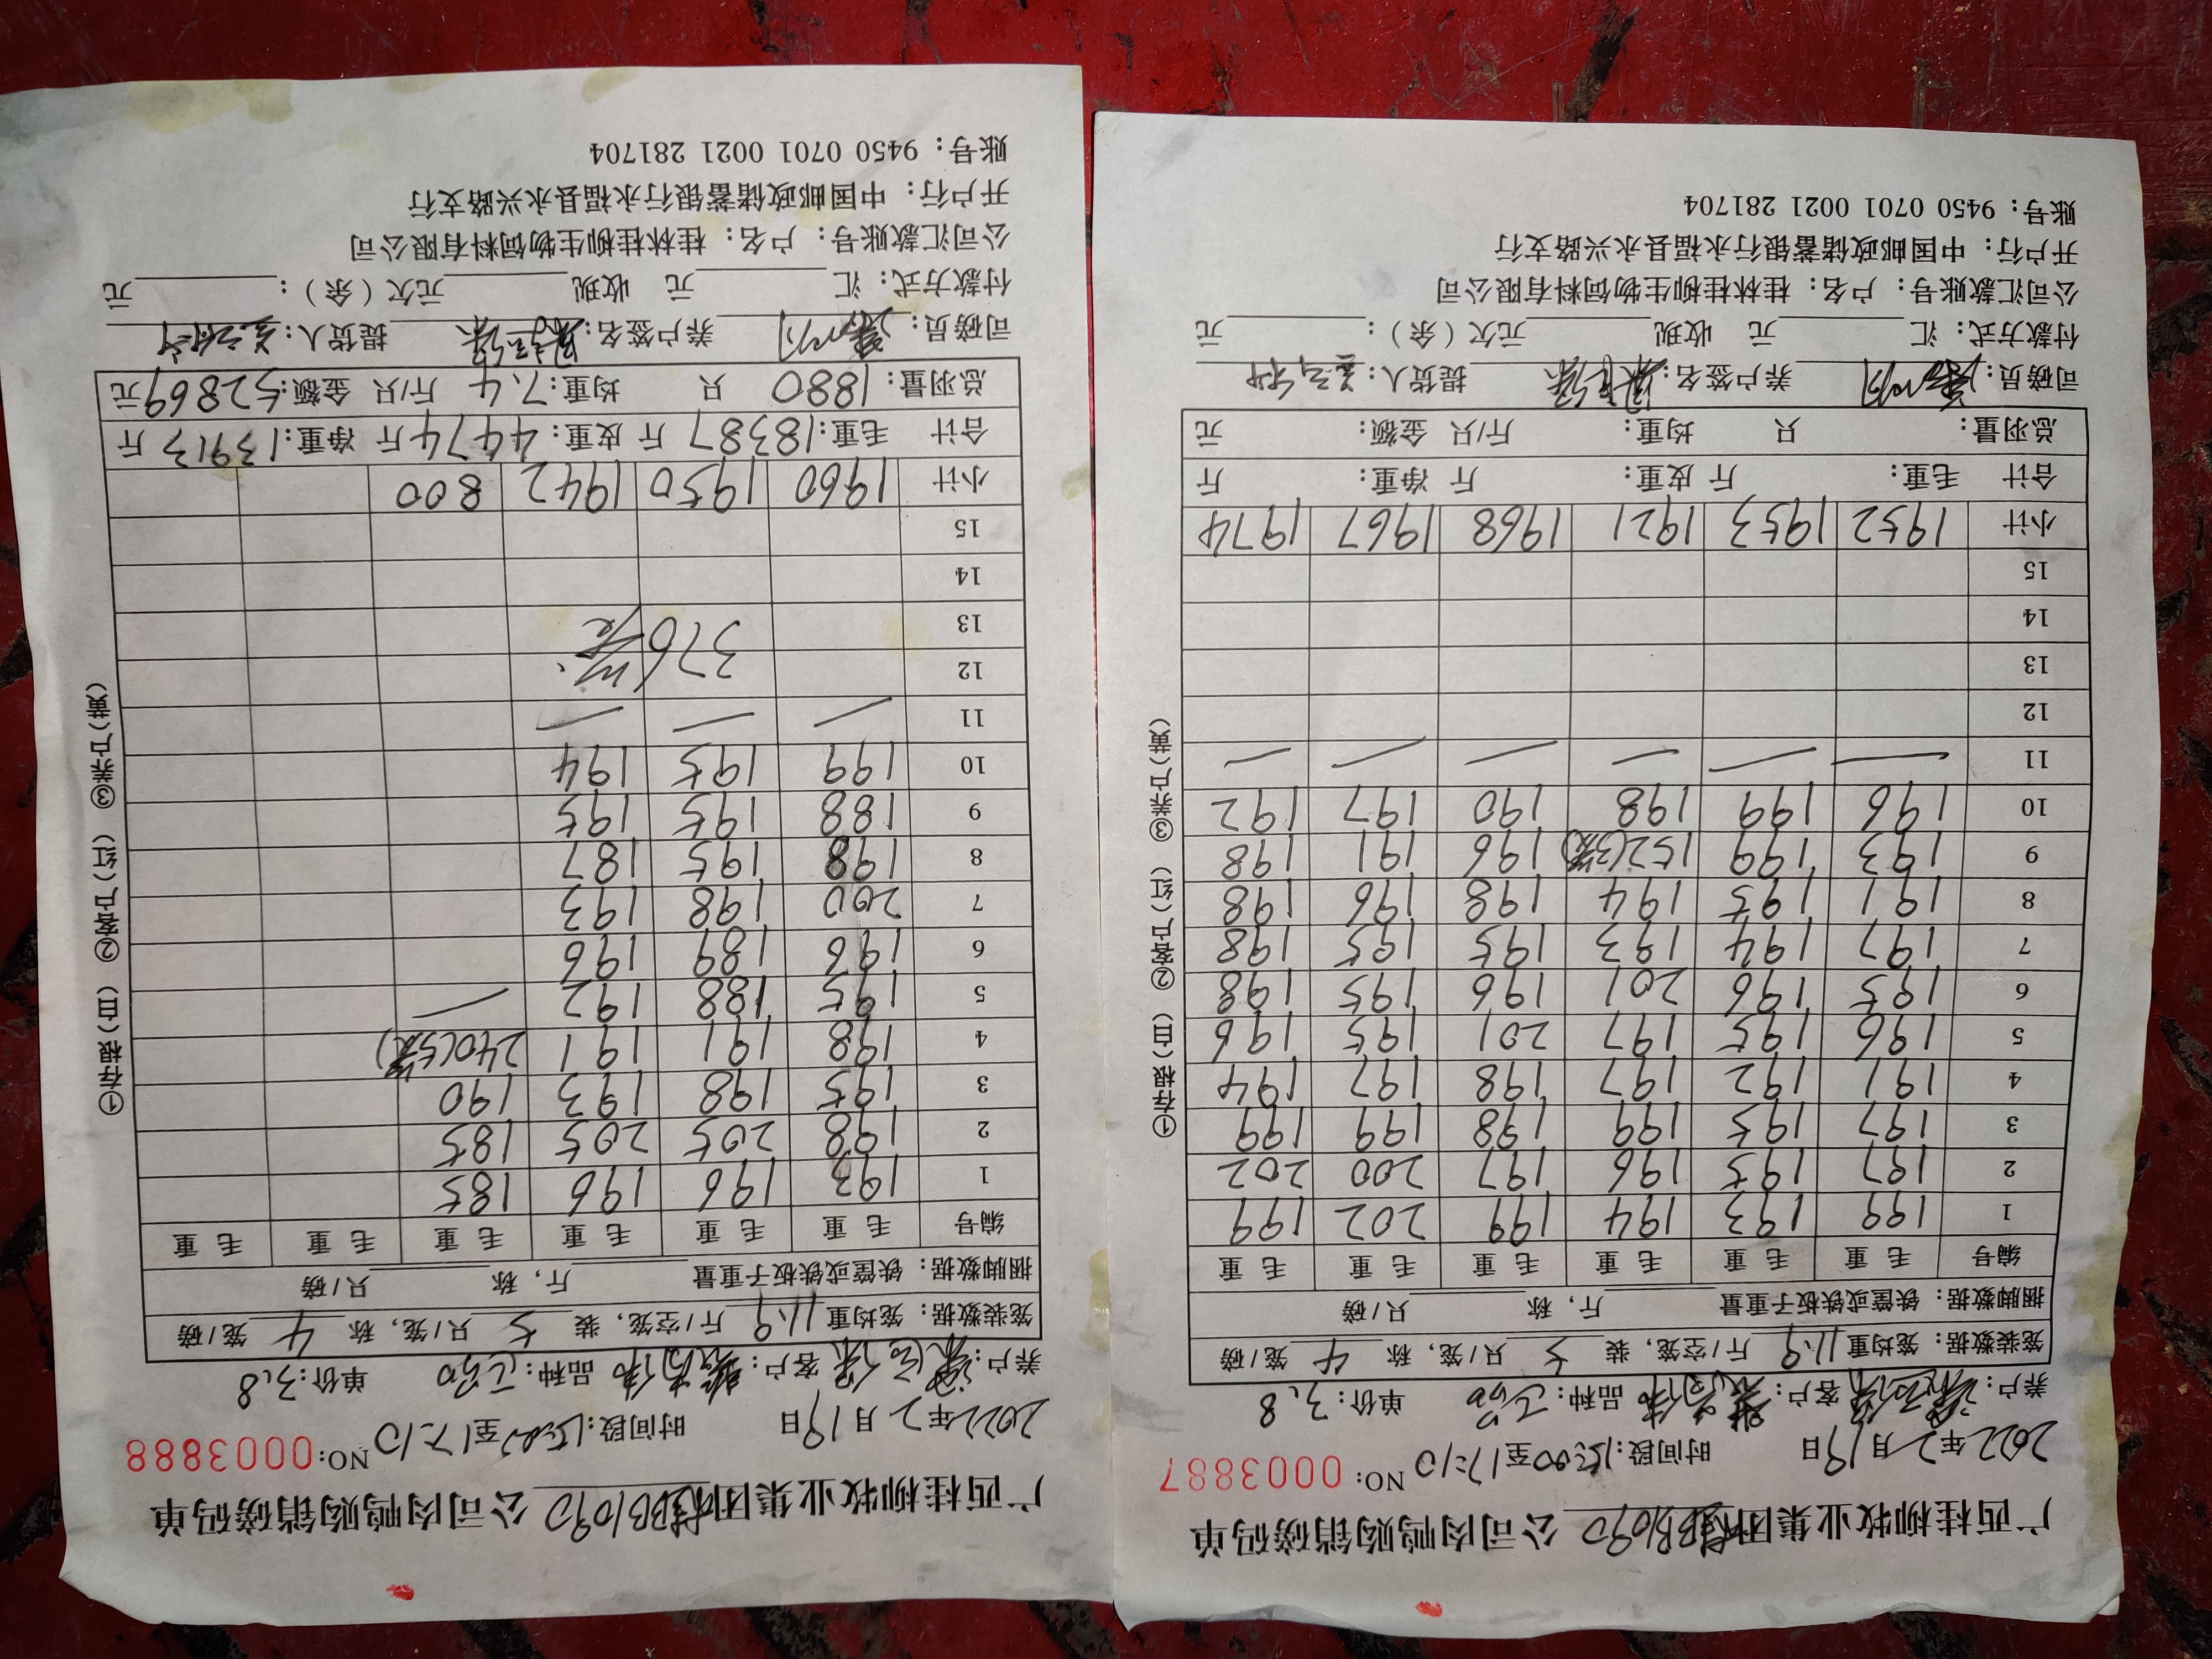 广西桂柳牧业集团桂BB1090公司肉鸭购销磅码单
2022年2月19日 时间段:15:00至17:10 NO:0003887
养户: 客户: 品种: 单价:3.8
笼装数据: 笼均重11.9斤/空笼, 装5只/笼, 称4笼/磅
捆脚数据: 铁筐或铁板子重量 斤, 称 只/磅
编号 毛重 毛重 毛重 毛重 毛重 毛重
1 199 193 194 199 202 199
2 197 195 196 197 200 202
3 197 195 199 198 199 199
4 191 192 197 198 197 194
5 196 195 197 201 195 196
6 195 196 201 196 195 198
7 197 194 193 195 195 198
8 191 195 194 198 196 198
9 193 199 152(3笼) 196 191 198
10 196 199 198 190 197 192
11 — — — — — —
12
13
14
15
小计 1952 1953 1921 1968 1967 1974
合计 毛重: 斤 皮重: 斤 净重: 斤
总羽量: 只 均重: 斤/只 金额: 元
司磅员: 养户签名: 提货人:
付款方式: 汇 元 收现 元欠(余): 元
公司汇款账号: 户名: 桂林桂柳生物饲料有限公司
开户行: 中国邮政储蓄银行永福县永兴路支行
账号: 9450 0701 0021 281704
①存根(白) ②客户(红) ③养户(黄)
广西桂柳牧业集团桂BB1090公司肉鸭购销磅码单
2022年2月19日 时间段:15:00至17:10 NO:0003888
养户: 客户: 品种: 单价:3.8
笼装数据: 笼均重11.9斤/空笼, 装5只/笼, 称4笼/磅
捆脚数据: 铁筐或铁板子重量 斤, 称 只/磅
编号 毛重 毛重 毛重 毛重 毛重 毛重
1 193 196 196 185
2 198 205 205 185
3 195 198 193 190
4 198 191 191 240(5笼)
5 195 188 192 —
6 196 189 196
7 200 198 193
8 198 195 187
9 188 195 195
10 199 195 194
11 — — —
12
13 376笼
14
15
小计 1960 1950 1942 800
合计 毛重:18387斤 皮重:4474斤 净重:13913斤
总羽量:1880只 均重:7.4斤/只 金额:52869元
司磅员: 养户签名: 提货人:
付款方式: 汇 元 收现 元欠(余): 元
公司汇款账号: 户名: 桂林桂柳生物饲料有限公司
开户行: 中国邮政储蓄银行永福县永兴路支行
账号: 9450 0701 0021 281704
①存根(白) ②客户(红) ③养户(黄)